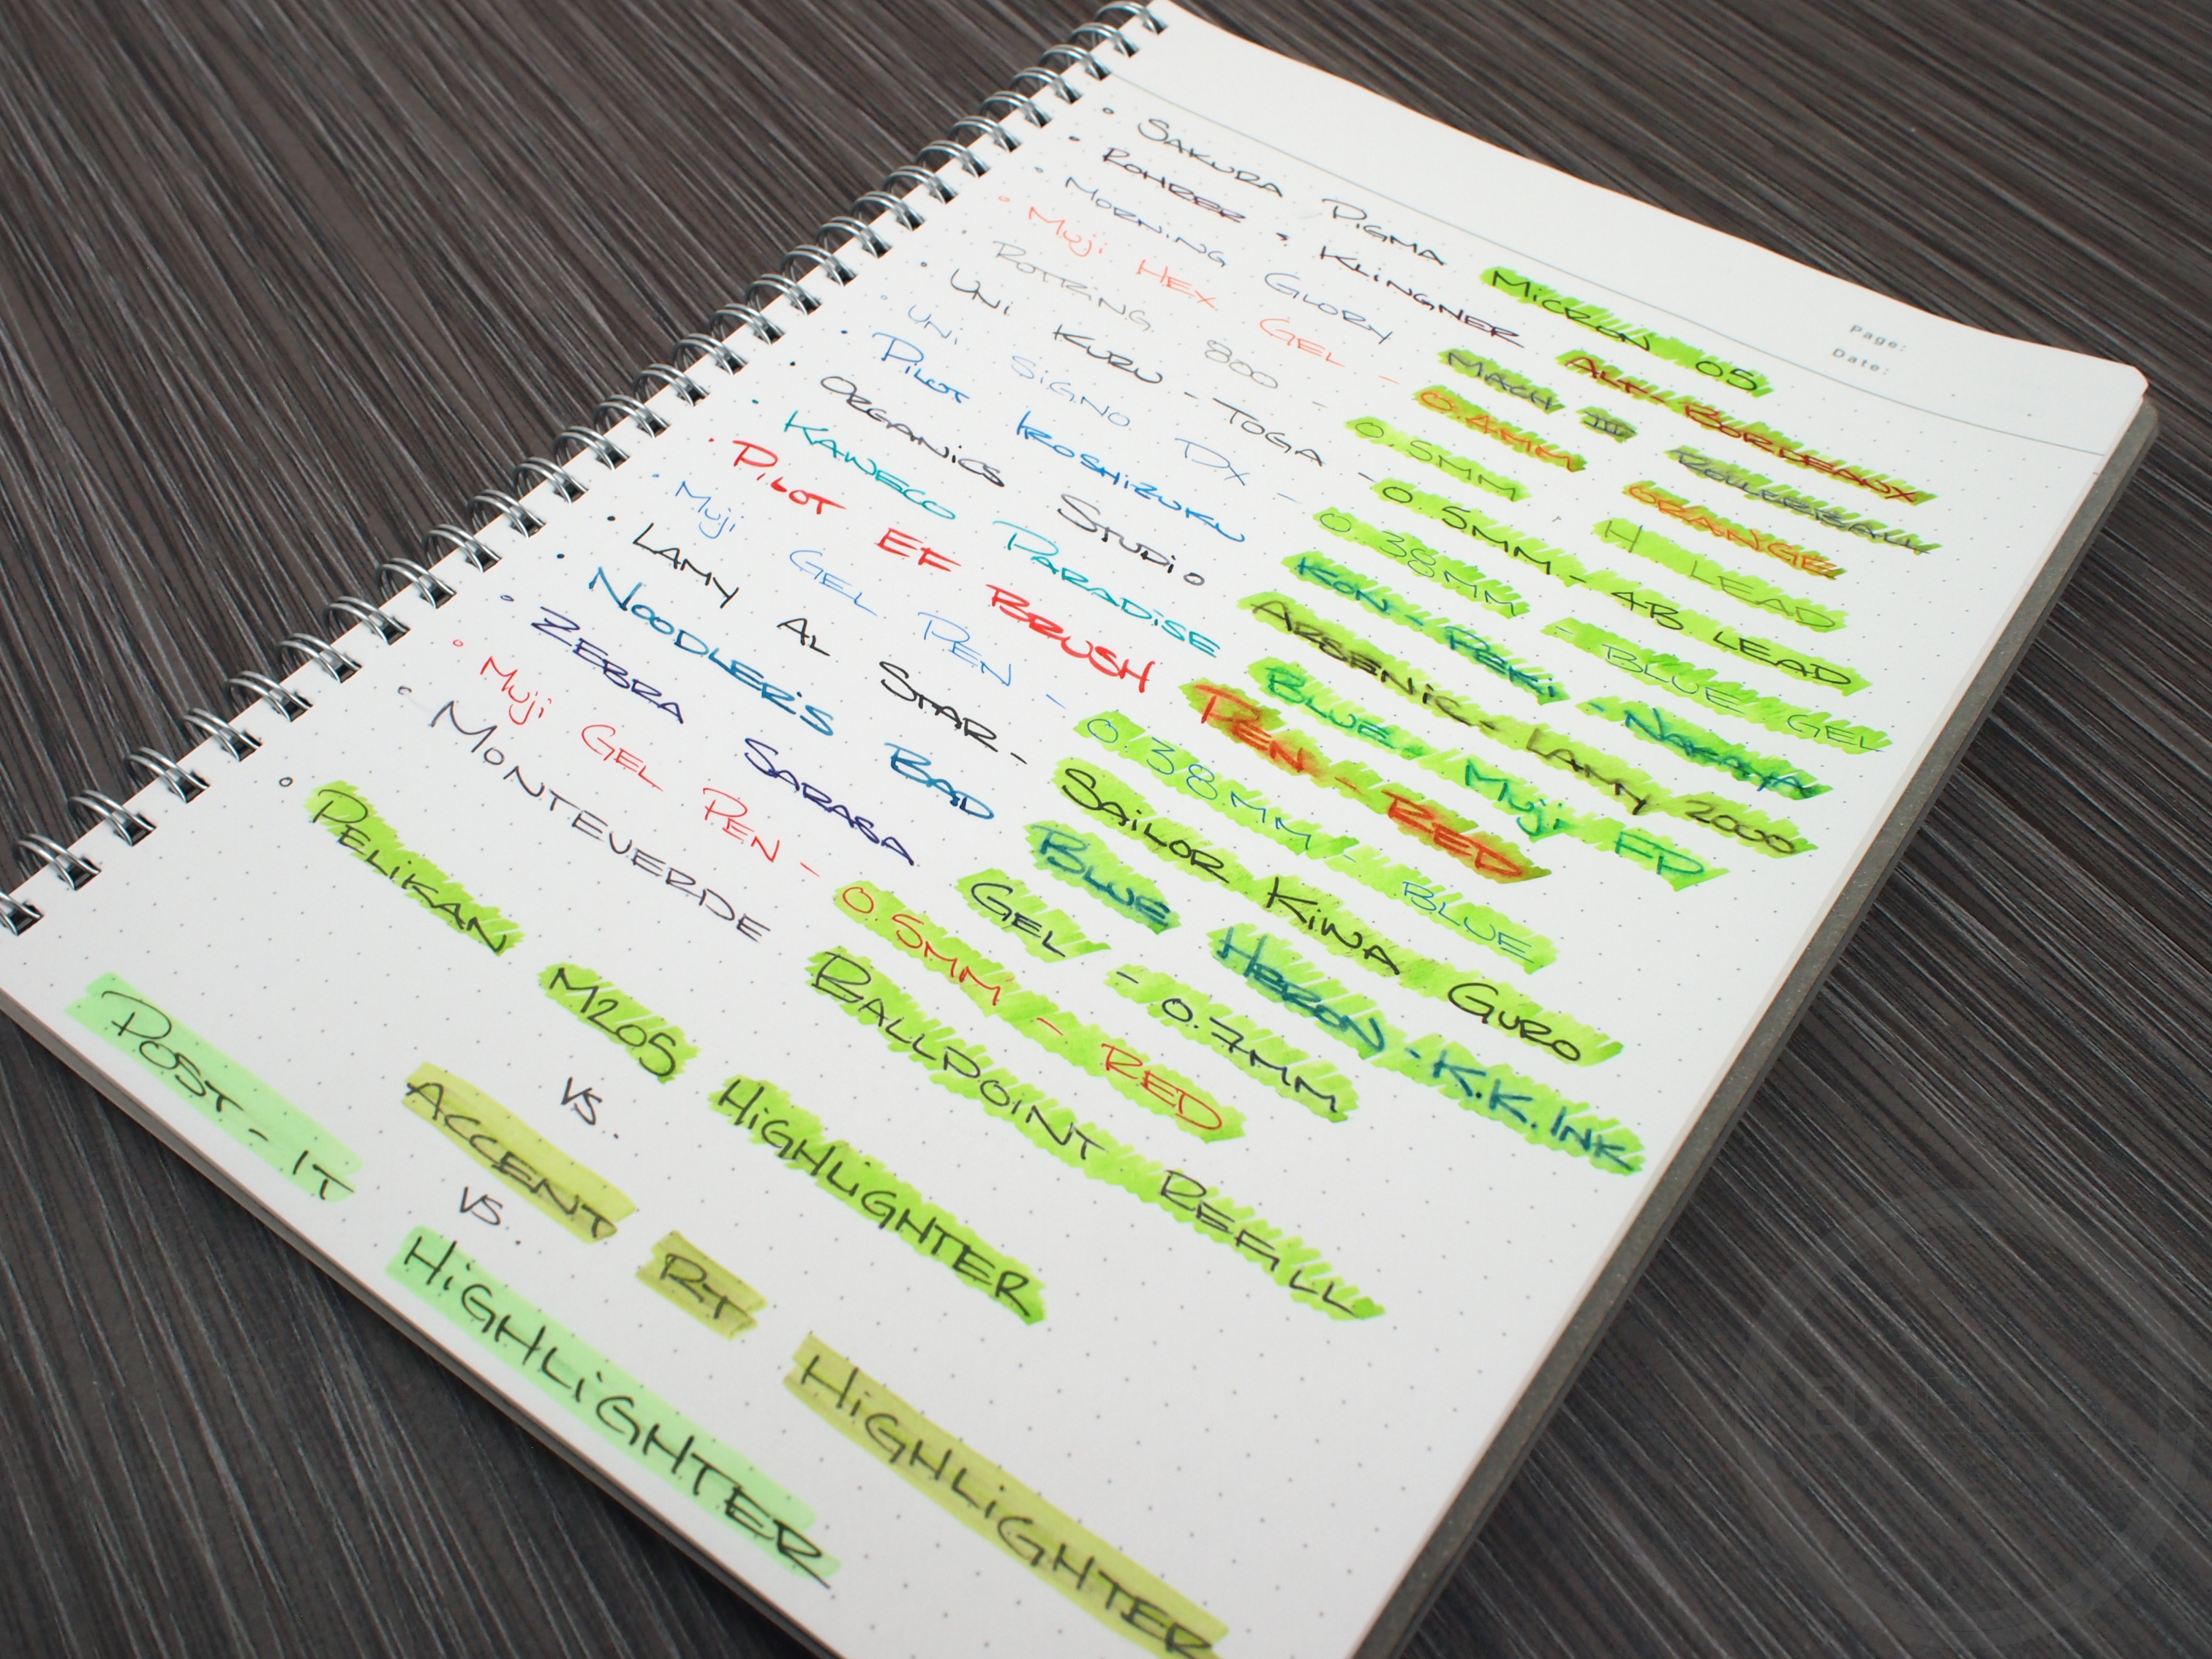 Page:
Date:
• SAKURA PIGMA MICRON 05
• ROHRER & KLINGNER ALT-BORDEAUX
• MORNING GLORY MACH III ROLLERBALL
• MUJI HEX GEL - 0.4MM ORANGE
ROTRING 800 - 0.5MM, H LEAD
• UNI KURU-TOGA - 0.5MM - 4B LEAD
• UNI SIGNO DX - 0.38MM - BLUE GEL
• PILOT IROSHIZUKU KON-PEKI - NAMI
• ORGANICS STUDIO ARSENIC - LAMY 2000
• KAWECO PARADISE BLUE / MUJI FP
• PILOT EF BRUSH PEN - RED
• MUJI GEL PEN - 0.38MM - BLUE
• LAMY AL STAR - SAILOR KIWA GURO
• NOODLER'S BAD BLUE HERON - K.K. INK
• ZEBRA SARASA GEL - 0.7MM
• MUJI GEL PEN - 0.5MM - RED
• MONTEVERDE BALLPOINT REFILL
• PELIKAN M205 HIGHLIGHTER
VS.
ACCENT RT HIGHLIGHTER
VS.
POST-IT HIGHLIGHTER